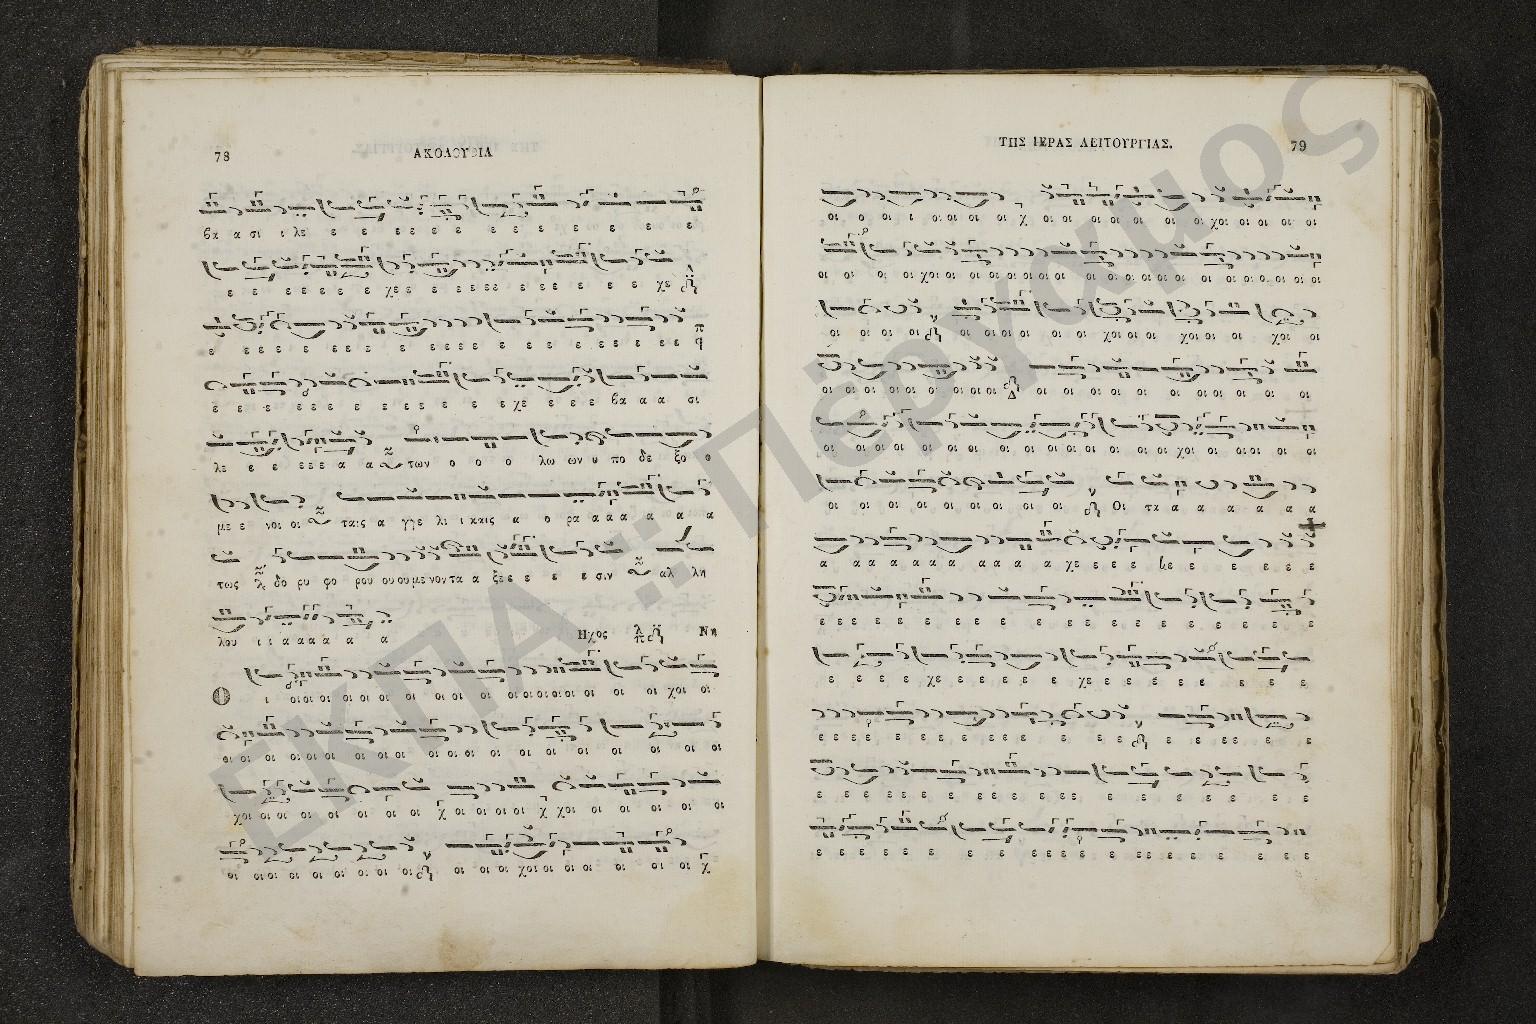 78
ΑΚΟΛΟΥΘΙΑ
βα α σι ι λε ε ε ε ε ε ε ε ε ε ε ε ε ε
ε ε ε ε ε ε ε χε ε ε ε ε ε ε ε ε ε ε ε ε χε
ε ε ε ε ε ε ε ε ε ε ε ε ε ε ε ε ε ε ε ε
ε ε ε ε ε ε ε ε ε ε ε ε χε ε ε ε βα α α σι
λε ε ε ε ε ε α α των ο ο ο λω ων υ πο δε ξο ο
με ε νοι οι ταις α γγε λι ι καις α ο ρα α α α α α α
τως δο ρυ φο ρου ου ου με νον τα α ξε ε ε ε ε ε σιν αλ λη
λου ι ι α α α α α α
Ηχος Νη
ι οι οι οι οι οι οι οι οι οι οι οι οι οι οι οι οι οι οι οι χοι οι
οι οι οι οι οι οι οι οι οι οι οι οι οι οι οι οι οι οι
χοι οι οι οι οι οι οι οι χ οι οι οι οι οι χ χοι οι οι οι οι οι
οι οι οι οι οι οι οι οι οι οι οι οι οι χοι οι οι οι οι οι οι χ
ΤΗΣ ΙΕΡΑΣ ΛΕΙΤΟΥΡΓΙΑΣ.
79
οι ο οι ι οι οι οι οι οι χ οι οι οι οι οι οι οι χοι οι οι οι οι
οι οι οι οι χοι οι οι οι οι οι οι οι οι οι οι οι οι οι οι οι οι οι οι οι οι
οι οι οι οι οι οι οι οι οι οι χοι οι οι χοι οι οι χοι οι
οι οι οι οι οι οι οι οι οι οι Δ οι οι οι οι οι οι οι οι οι
οι οι οι οι οι οι οι οι οι οι οι οι οι οι χοι οι οι οι οι οι
οι οι οι οι οι οι οι οι οι Οι τα α α α α α α
α α α α α α α α α χε ε ε ε με ε ε ε ε
ε ε ε ε ε ε ε ε ε ε ε ε ε ε ε ε ε ε
ε ε ε ε χε ε ε ε ε ε χε ε ε ε ε ε ε ε ε
ε ε ε ε ε ε ε ε ε ε ε ε ε ε ε ε ε ε ε ε ε
ε ε ε ε ε ε ε ε ε ε ε ε ε ε ε ε ε ε ε
ε ε ε ε ε ε ε ε ε ε ε ε ε ε ε ε ε ε
ΕΚΠΑ :: Πέργαμος